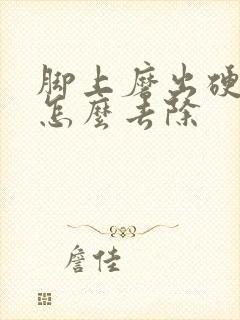 脚上磨出硬
怎麼去除
詹佳